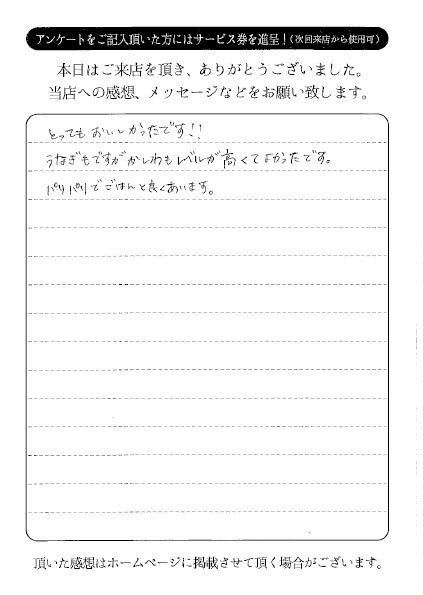 アンケートをご記入頂いた方にはサービス券を進呈！（次回来店から使用可）
本日はご来店を頂き、ありがとうございました。
当店への感想、メッセージなどをお願い致します。
とってもおいしかったです!!
うなぎもですがかしわもレベルが高くてよかったです。
パリパリでごはんと良くあいます。
頂いた感想はホームページに掲載させて頂く場合がございます。